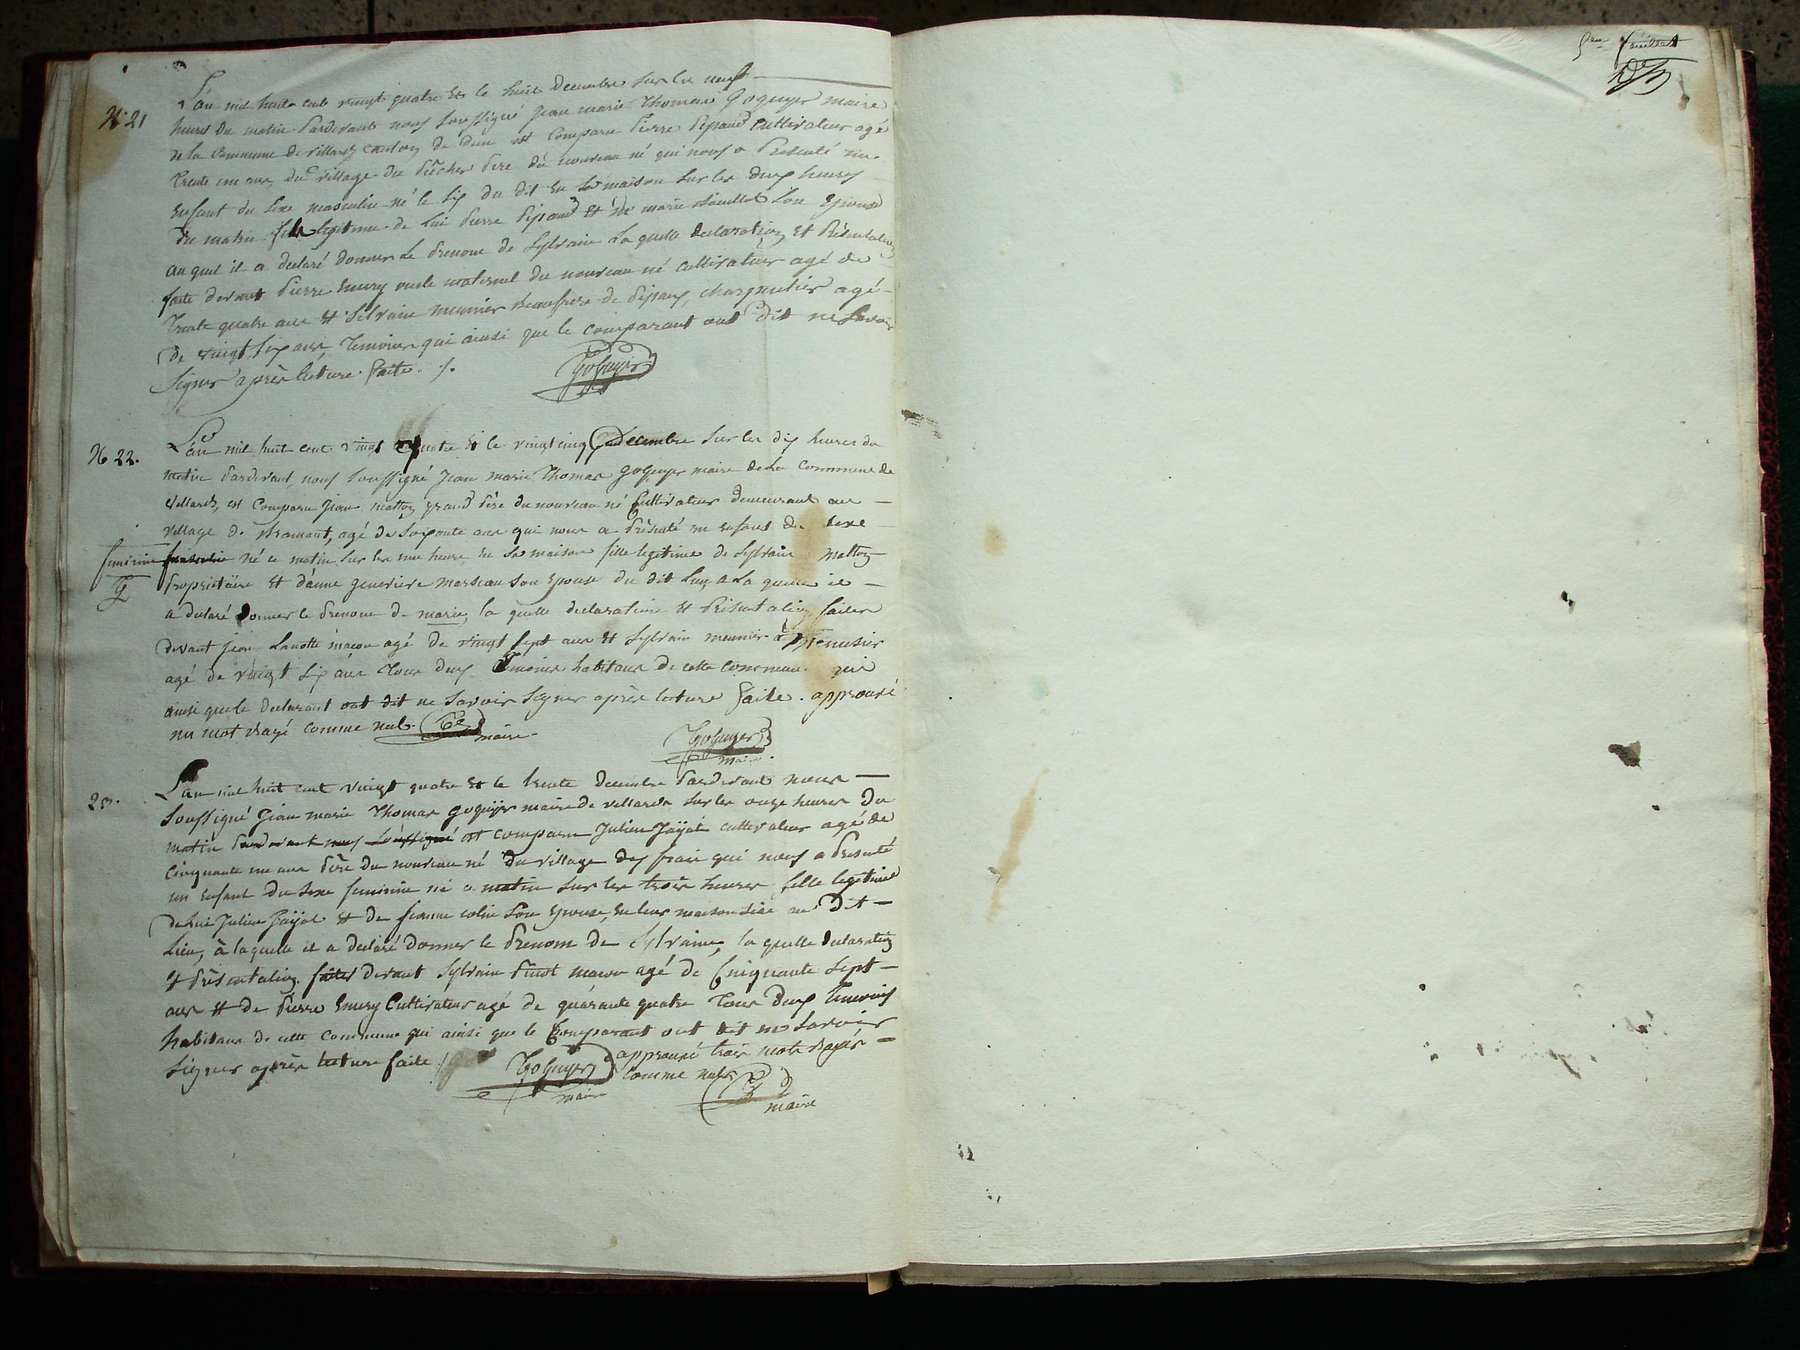 N° 21
L'an mil huit cent vingt quatre et le huit decembre sur les neuf
heures du matin Pardevant nous soussigné Jean marie Thomas Goguyer maire
de la Commune de Villard canton de Dun est Comparu Pierre Pipaud Cultivateur agé
trente un ans, du village du Pêcher Pere du nouveau né qui nous a Presenté un
enfant du sexe masculin né le six du dit en sa maison sur les deux heures
du matin fils legitime de lui Pierre Pipaud et de marie son Epouse
au quel il a declaré donner le Prenom de Sylvain La quelle declaration et Présentation
faite devant Pierre Emery oncle maternel du nouveau né cultivateur agé de
trente quatre ans et Silvain meunier Beaufrere de Pipaud, charpentier agé
de vingt six ans, Temoins qui ainsi que le comparant ont dit ne Savoir
Signer après lecture faite. /.
Goguyer
N° 22.
L'an mil huit cent vingt quatre et le vingt cinq decembre sur les dix heures du
matin Pardevant nous soussigné Jean marie Thomas Goguyer maire de La Commune de
Villard, est Comparu Jean mattoy grand Père du nouveau né Cultivateur demeurant au
village de , agé de soixante ans qui nous a Présenté un enfant du sexe
feminin masculin né ce matin sur les une heure en sa maison fille legitime de Sylvain mattoy
G Proprietaire et d'anne genevieve marseau son Epouse du dit Lieu, a La quelle il
a declaré donner le Prenom de marie, la quelle declaration et Présentation faites
devant Jean Lanotte macon agé de vingt sept ans et Sylvain meunier Menusier
agé de vingt six ans Tous deux Temoins habitans de cette commune qui
ainsi que le declarant ont dit ne Savoir Signer après lecture faite. approuvé
un mot rayé comme nul. G maire
Goguyer
maire.
23.
L'an mil huit cent vingt quatre et le trente decembre Pardevant nous
soussigné Jean marie Thomas Goguyer maire de villard sur les onze heures du
matin Pardevant nous soussigné est comparu Julien Jayat cultivateur agé de
Cinquante un ans Père du nouveau né du village des frais qui nous a Presenté
un enfant du sexe feminin né ce matin sur les trois heures fille legitime
de lui Julien Jayat et de jeanne colin son Epouse, en leur maison sise au dit
Lieu, à laquelle il a declaré donner le Prenom de Sylvaine, la quelle declaration
et Présentation faites devant Sylvain Pinot macon agé de Cinquante Sept
ans et de Pierre Emery Cultivateur agé de quarante quatre Tous deux Temoins
habitans de cette commune qui ainsi que le Comparant ont dit ne Savoir
Signer après lecture faite / approuvé trois mots rayés
Goguyer comme nuls. G
maire maire
5eme feuillet